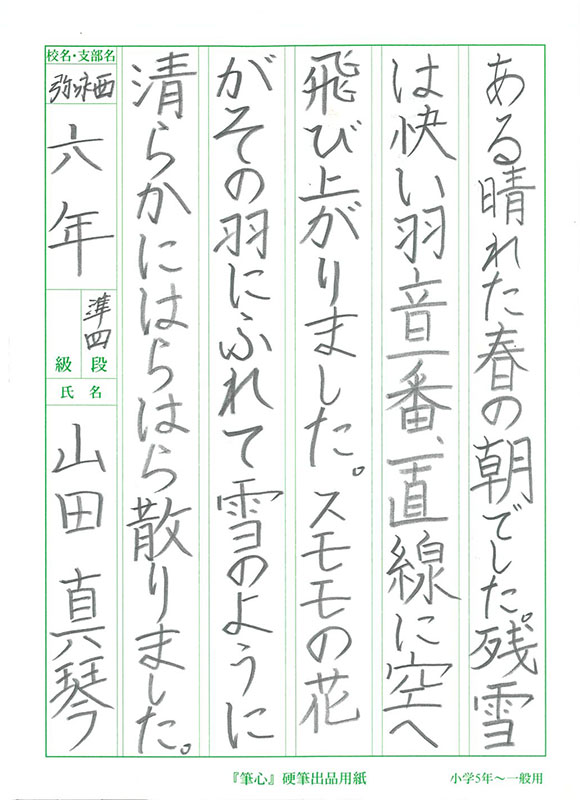 ある晴れた春の朝でした。残雪
は快い羽音一番、一直線に空へ
飛び上がりました。スモモの花
がその羽にふれて雪のように
清らかにはらはら散りました。
校名・支部名
弥永西
六年
準四
段
級
氏名
山田真琴
『筆心』硬筆出品用紙
小学5年～一般用